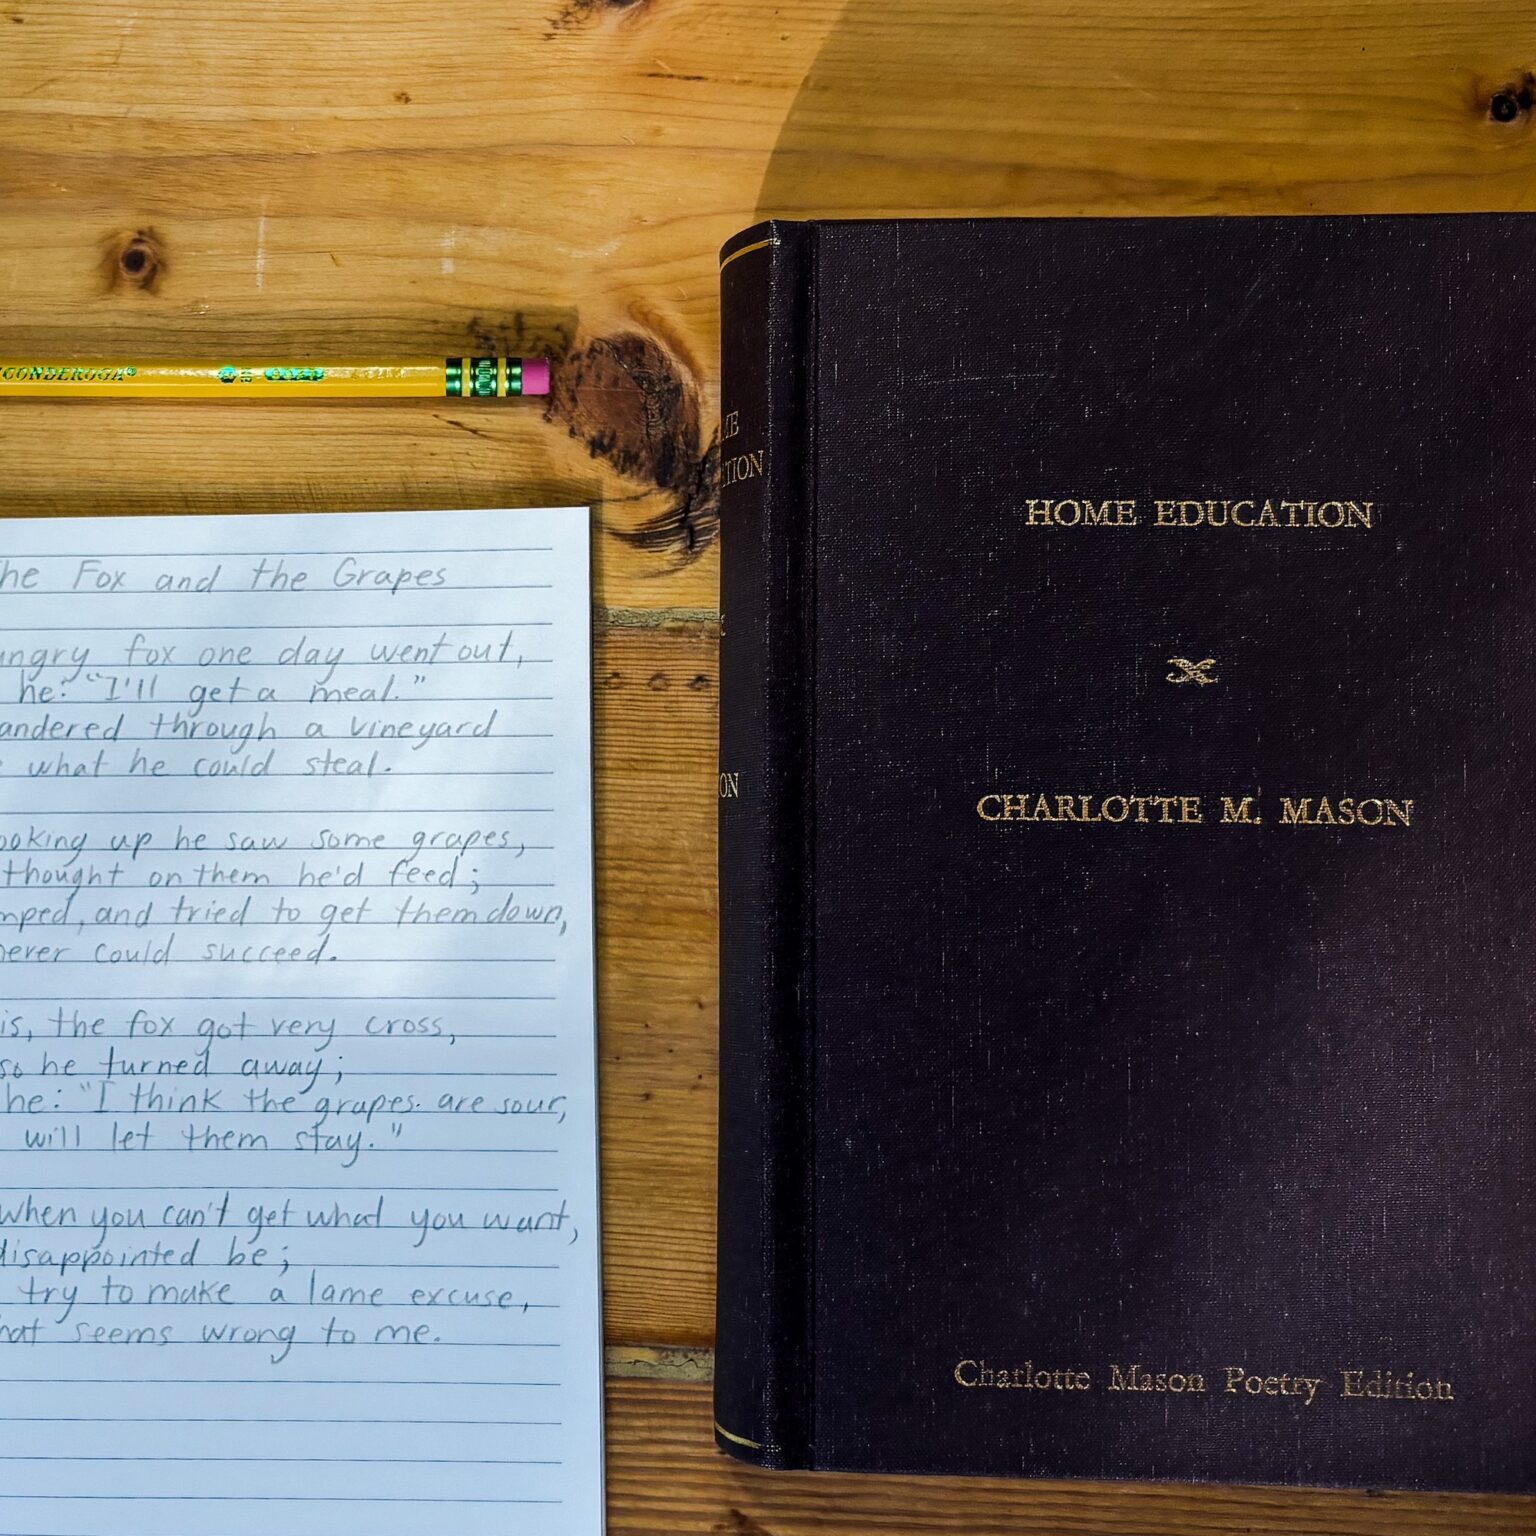 TICONDEROGA®
The Fox and the Grapes
ungry fox one day went out,
he: "I'll get a meal."
andered through a vineyard
what he could steal.
ooking up he saw some grapes,
thought on them he'd feed;
mped, and tried to get them down,
never could succeed.
is, the fox got very cross,
so he turned away;
he: "I think the grapes are sour,
will let them stay."
when you can't get what you want,
disappointed be;
try to make a lame excuse,
hat seems wrong to me.
ME
TION
ON
HOME EDUCATION
CHARLOTTE M. MASON
Charlotte Mason Poetry Edition